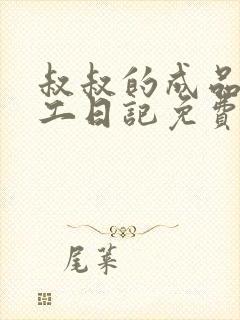 叔叔的成品
工日記免費
尾葉